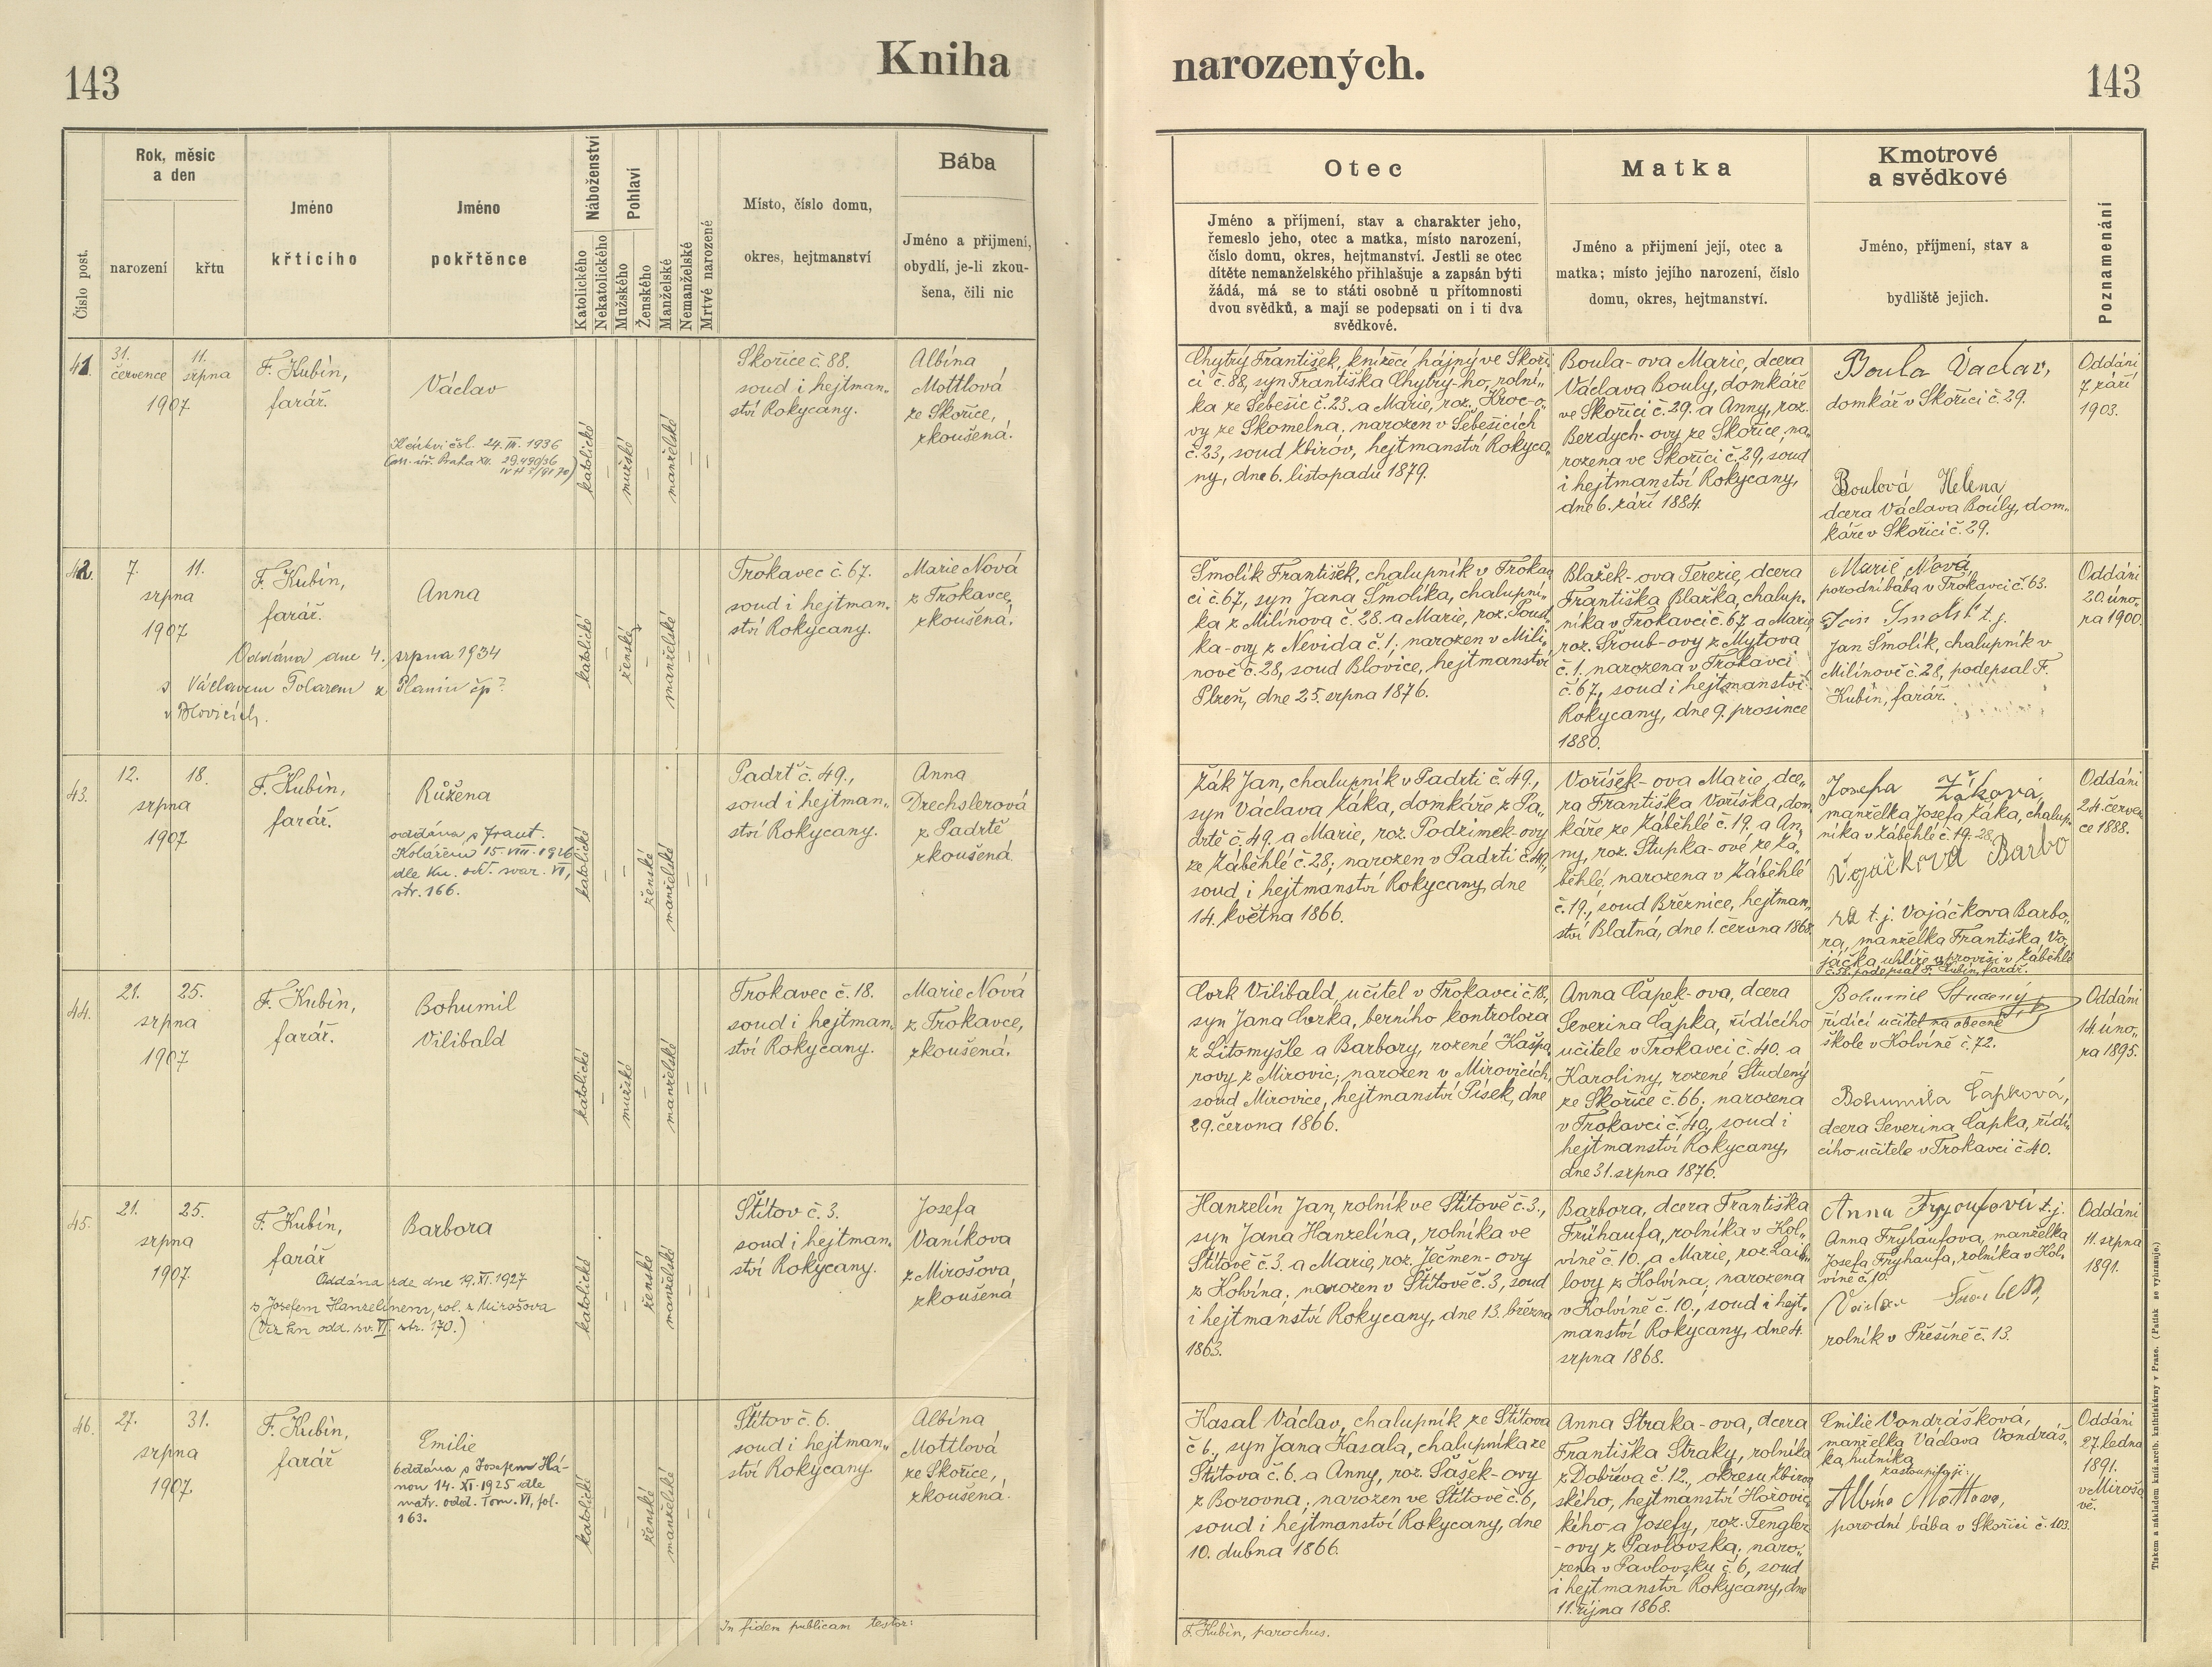 143
Kniha
narozených.
143
Číslo post.
Rok, měsíc
a den
narození
křtu
Jméno
křticího
Jméno
pokřtěnce
Náboženství
Katolického
Nekatolického
Pohlaví
Mužského
Ženského
Manželské
Nemanželské
Mrtvě narozené
Místo, číslo domu,
okres, hejtmanství
Bába
Jméno a příjmení,
obydlí, je-li zkou-
šena, čili nic
Otec
Jméno a příjmení, stav a charakter jeho,
řemeslo jeho, otec a matka, místo narození,
číslo domu, okres, hejtmanství. Jestli se otec
dítěte nemanželského přihlašuje a zapsán býti
žádá, má se to státi osobně u přítomnosti
dvou svědků, a mají se podepsati on i ti dva
svědkové.
Matka
Jméno a příjmení její, otec a
matka; místo jejího narození, číslo
domu, okres, hejtmanství.
Kmotrové
a svědkové
Jméno, příjmení, stav a
bydliště jejich.
Poznamenání
41.
31.
července
11.
srpna
1907
F. Kubín,
farář.
Václav
katolické
mužské
manželské
Skořice č. 88.
soud i hejtman„
ství Rokycany.
Albína
Mottlová
ze Skořice,
zkoušená.
Chytrý František, knížecí hájný ve Skoři„
ci č. 88, syn Františka Chytry-ho, rolní„
ka ze Sebešic č. 23. a Marie, roz. Kroc-o„
vy ze Skomelna, narozen v Sebešicích
č. 23, soud Zbirov, hejtmanství Rokyca„
ny, dne 6. listopadu 1879.
Boula-ova Marie, dcera
Václava Bouly, domkáře
ve Skořici č. 29. a Anny, roz.
Berdych-ovy ze Skořice, na„
rozena ve Skořici č. 29, soud
i hejtmanství Rokycany,
dne 6. září 1884.
Boula Václav,
domkář v Skořici č. 29.
Boulová Helena
dcera Václava Bouly, dom„
káře v Skořici č. 29.
Oddáni
7. září
1903.
42.
7.
11.
srpna
1907
F. Kubín,
farář.
Anna
Oddána dne 4. srpna 1934
s Václavem Tolarem z Planin čp?
v Blovicích.
katolické
ženské
manželské
Trokavec č. 67.
soud i hejtman„
ství Rokycany.
Marie Nová
z Trokavce,
zkoušená.
Smolík František, chalupník v Trokav„
ci č. 67, syn Jana Smolíka, chalupní„
ka z Milínova č. 28. a Marie, roz. Soud„
ka-ovy z Nevida č. 1; narozen v Milí„
nově č. 28, soud Blovice, hejtmanství
Plzeň, dne 25. srpna 1876.
Blažek-ova Terezie, dcera
Františka Blažka, chalup„
níka v Trokavci č. 67. a Marie
roz. Šroub-ovy z Mýtova
č. 1. narozena v Trokavci
č. 67, soud i hejtmanství
Rokycany, dne 9. prosince
1880.
Marie Nová,
porodní bába v Trokavci č. 63.
Jan Smolík t. j.
Jan Smolík, chalupník v
Milínově č. 28, podepsal F.
Kubín, farář.
Oddáni
20. úno„
ra 1900.
43.
12.
18.
srpna
1907
F. Kubín,
farář.
Růžena
oddána s Frant.
Kolářem 15. VIII. 1926
dle kn. odd. svaz. VI,
str. 166.
katolické
ženské
manželské
Padrť č. 49.,
soud i hejtman„
ství Rokycany.
Anna
Drechslerová
z Padrtě
zkoušená.
Žák Jan, chalupník v Padrti č. 49.,
syn Václava Žáka, domkáře z Pa„
drtě č. 49. a Marie, roz. Podzimek-ovy
ze Záběhlé č. 28; narozen v Padrti č. 49,
soud i hejtmanství Rokycany, dne
14. května 1866.
Voříšek-ova Marie, dce„
ra Františka Voříška, dom„
káře ze Záběhlé č. 19. a An„
ny, roz. Stupka-ové ze Zá„
běhlé, narozena v Záběhlé
č. 19., soud Březnice, hejtman„
ství Blatná, dne 1. června 1868.
Josefa Žáková,
manželka Josefa Žáka, chalup„
níka v Záběhlé č. 19. 28.
Vojáčková Barbo
ra t. j. Vojáčkova Barbo„
ra, manželka Františka Vo„
jáčka, uhlíře v Záběhlé
podepsal F. Kubín, farář.
Oddáni
24. červen„
ce 1888.
44.
21.
25.
srpna
1907
F. Kubín,
farář.
Bohumil
Vilibald
katolické
mužské
manželské
Trokavec č. 18.
soud i hejtman„
ství Rokycany.
Marie Nová
z Trokavce,
zkoušená.
Cvrk Vilibald, učitel v Trokavci č. 18,
syn Jana Cvrka, berního kontrolora
z Litomyšle a Barbory, rozené Kašpa„
rovy z Mirovic; narozen v Mirovicích,
soud Mirovice, hejtmanství Písek, dne
29. června 1866.
Anna Čapek-ova, dcera
Severina Čapka, řídícího
učitele v Trokavci č. 40. a
Karoliny, rozené Studený
ze Skořice č. 66; narozena
v Trokavci č. 40, soud i
hejtmanství Rokycany,
dne 31. srpna 1876.
Bohumil Studený,
řídící učitel na obecné
škole v Kolvíně č. 72.
Bohumila Čapková,
dcera Severina Čapka, řídí„
cího učitele v Trokavci č. 40.
Oddáni
14. úno„
ra 1895.
45.
21.
25.
srpna
1907.
F. Kubín,
farář
Barbora
Oddána zde dne 19. XI. 1927
s Josefem Hanzelínem, rol. z Mirošova
(Viz kn. odd. sv. VI. str. 170.)
katolické
ženské
manželské
Štítov č. 3.
soud i hejtman„
ství Rokycany.
Josefa
Vaníkova
z Mirošova
zkoušená
Hanzelín Jan, rolník ve Štítově č. 3.,
syn Jana Hanzelína, rolníka ve
Štítově č. 3. a Marie, roz. Ječmen-ovy
z Kolvína, narozen v Štítově č. 3, soud
i hejtmanství Rokycany, dne 13. března
1863.
Barbora, dcera Františka
Frühaufa, rolníka v Kol„
víně č. 10. a Marie, roz.
lovy z Kolvína; narozena
v Kolvíně č. 10., soud i hejt„
manství Rokycany, dne 4.
srpna 1868.
Anna Fryhoufová t. j.
Anna Fryhaufova, manželka
Josefa Fryhaufa, rolníka v Kol„
víně č. 10.
rolník v Přešíně č. 13.
Oddáni
11. srpna
1891.
46.
27.
31.
srpna
1907.
F. Kubín,
farář
Emilie
oddána s Josefem Há-
nou 14. XI. 1925 dle
matr. odd. Tom. VI, fol.
163.
katolické
ženské
manželské
Štítov č. 6.
soud i hejtman„
ství Rokycany.
Albína
Mottlová
ze Skořice,
zkoušená.
Kasal Václav, chalupník ze Štítova
č 6., syn Jana Kasala, chalupníka ze
Štítova č. 6. a Anny, roz. Šašek-ovy
z Borovna; narozen ve Štítově č. 6,
soud i hejtmanství Rokycany, dne
10. dubna 1866.
Anna Straka-ova, dcera
Františka Straky, rolníka
z Dobříva č. 12., okresu Zbirov„
ského, hejtmanství Hořovic„
kého a Josefy, roz. Tengler
-ovy z Pavlovska; naro„
zena v Pavlovsku č. 6, soud
i hejtmanství Rokycany, dne
11. října 1868.
Emilie Vondrášková,
manželka Václava Vondráš„
ka, hutníka
zastoupil ji:
Albína Mottlova,
porodní bába v Skořici č. 103.
Oddáni
27. ledna
1891.
v Miroš„
vě.
In fidem publicam testor:
F. Kubín, parochus.
Tiskem a nákladem kníž.arcib. knihtiskárny v Praze. (Patisk se vyhrazuje.)